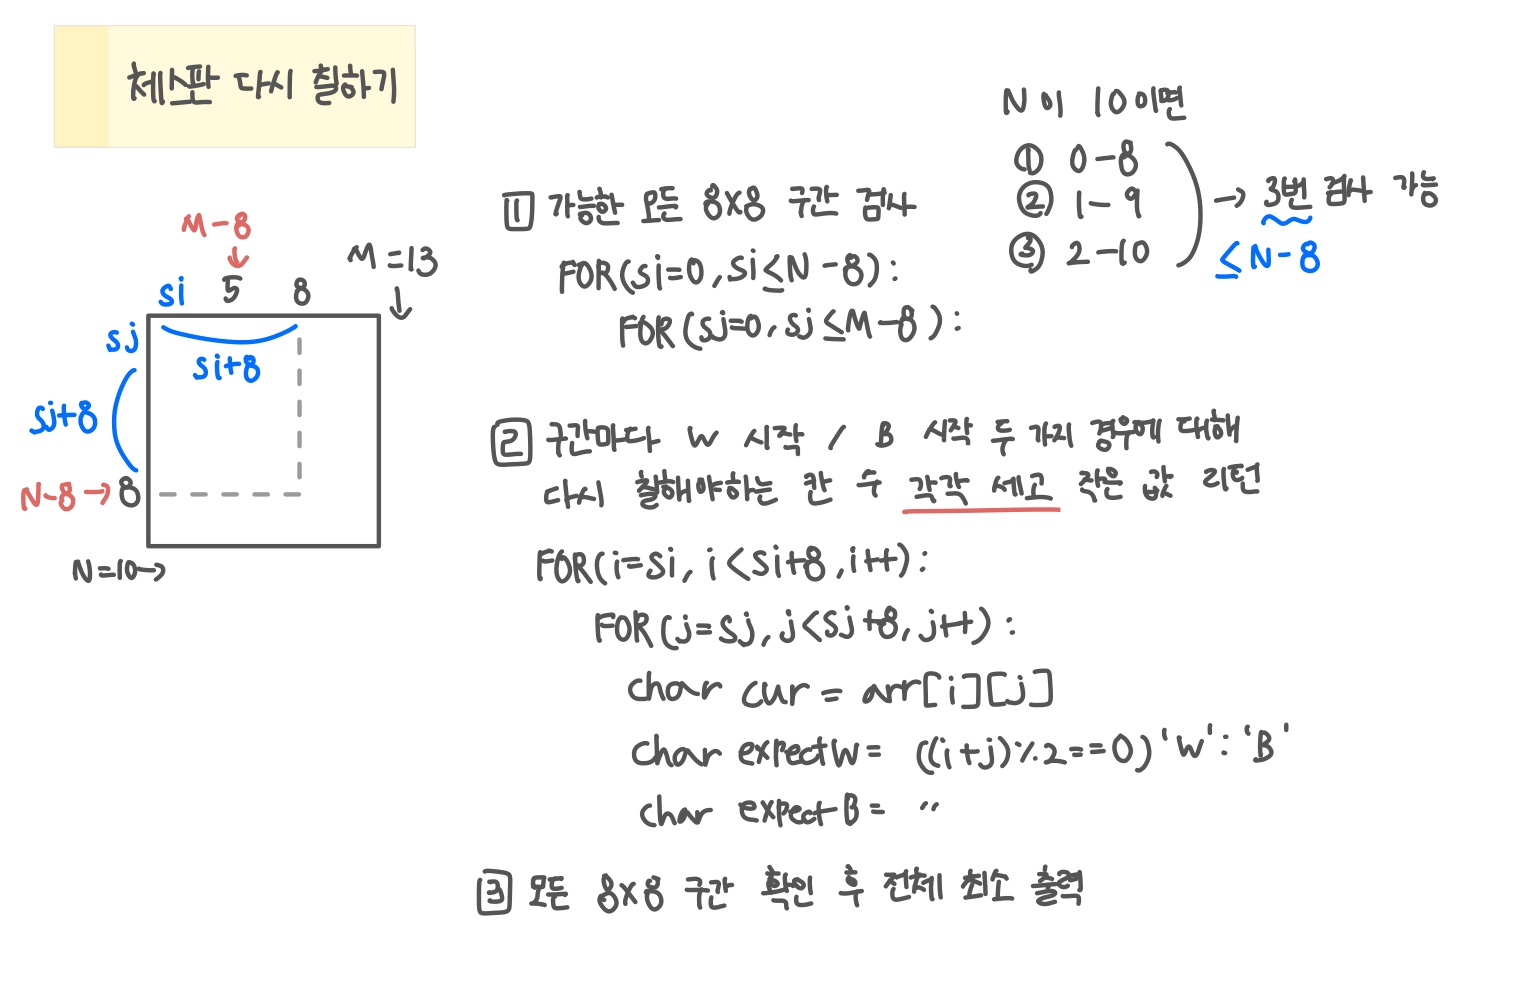 체스판 다시 칠하기
N이 10이면
① 0-8
② 1-9
③ 2-10
→ 3번 검사 가능
≤N-8
M-8
↓
M=13
↓
si 5 8
sj
si+8
sj+8
N-8→8
N=10→
1 가능한 모든 8x8 구간 검사
FOR(si=0, si≤N-8):
FOR(sj=0, sj≤M-8):
2 구간마다 W 시작 / B 시작 두 가지 경우에 대해
다시 칠해야하는 칸 수 각각 세고 작은 값 리턴
FOR(i=si, i<si+8, i++):
FOR(j=sj, j<sj+8, j++):
char cur = arr[i][j]
char expectW = ((i+j)%2==0) 'W': 'B'
char expectB = 〃
3 모든 8x8 구간 확인 후 전체 최소 출력